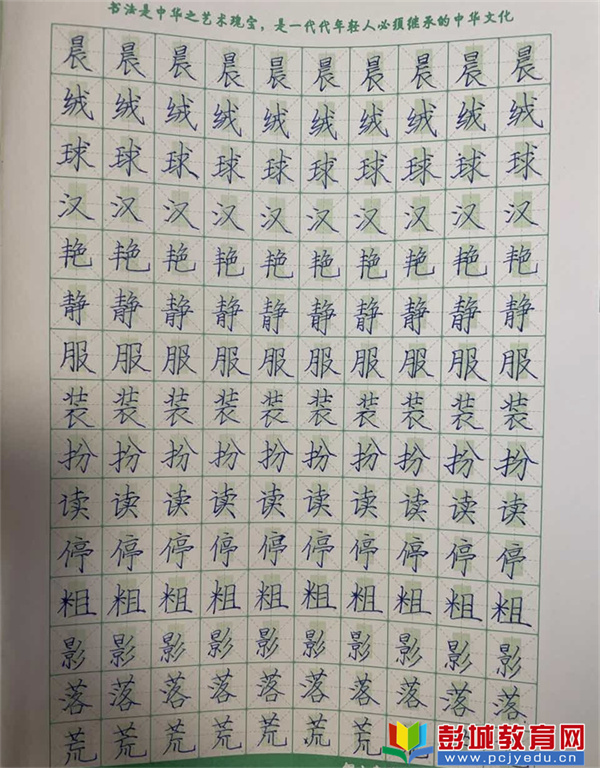 书法是中华之艺术瑰宝，是一代代年轻人必须继承的中华文化
晨晨晨晨晨晨晨晨晨晨
绒绒绒绒绒绒绒绒绒绒
球球球球球球球球球球
汉汉汉汉汉汉汉汉汉汉
艳艳艳艳艳艳艳艳艳艳
静静静静静静静静静静
服服服服服服服服服服
装装装装装装装装装装
扮扮扮扮扮扮扮扮扮扮
读读读读读读读读读读
停停停停停停停停停停
粗粗粗粗粗粗粗粗粗粗
影影影影影影影影影影
落落落落落落落落落落
荒荒荒荒荒荒荒
彭城教育网
www.pcjyedu.cn